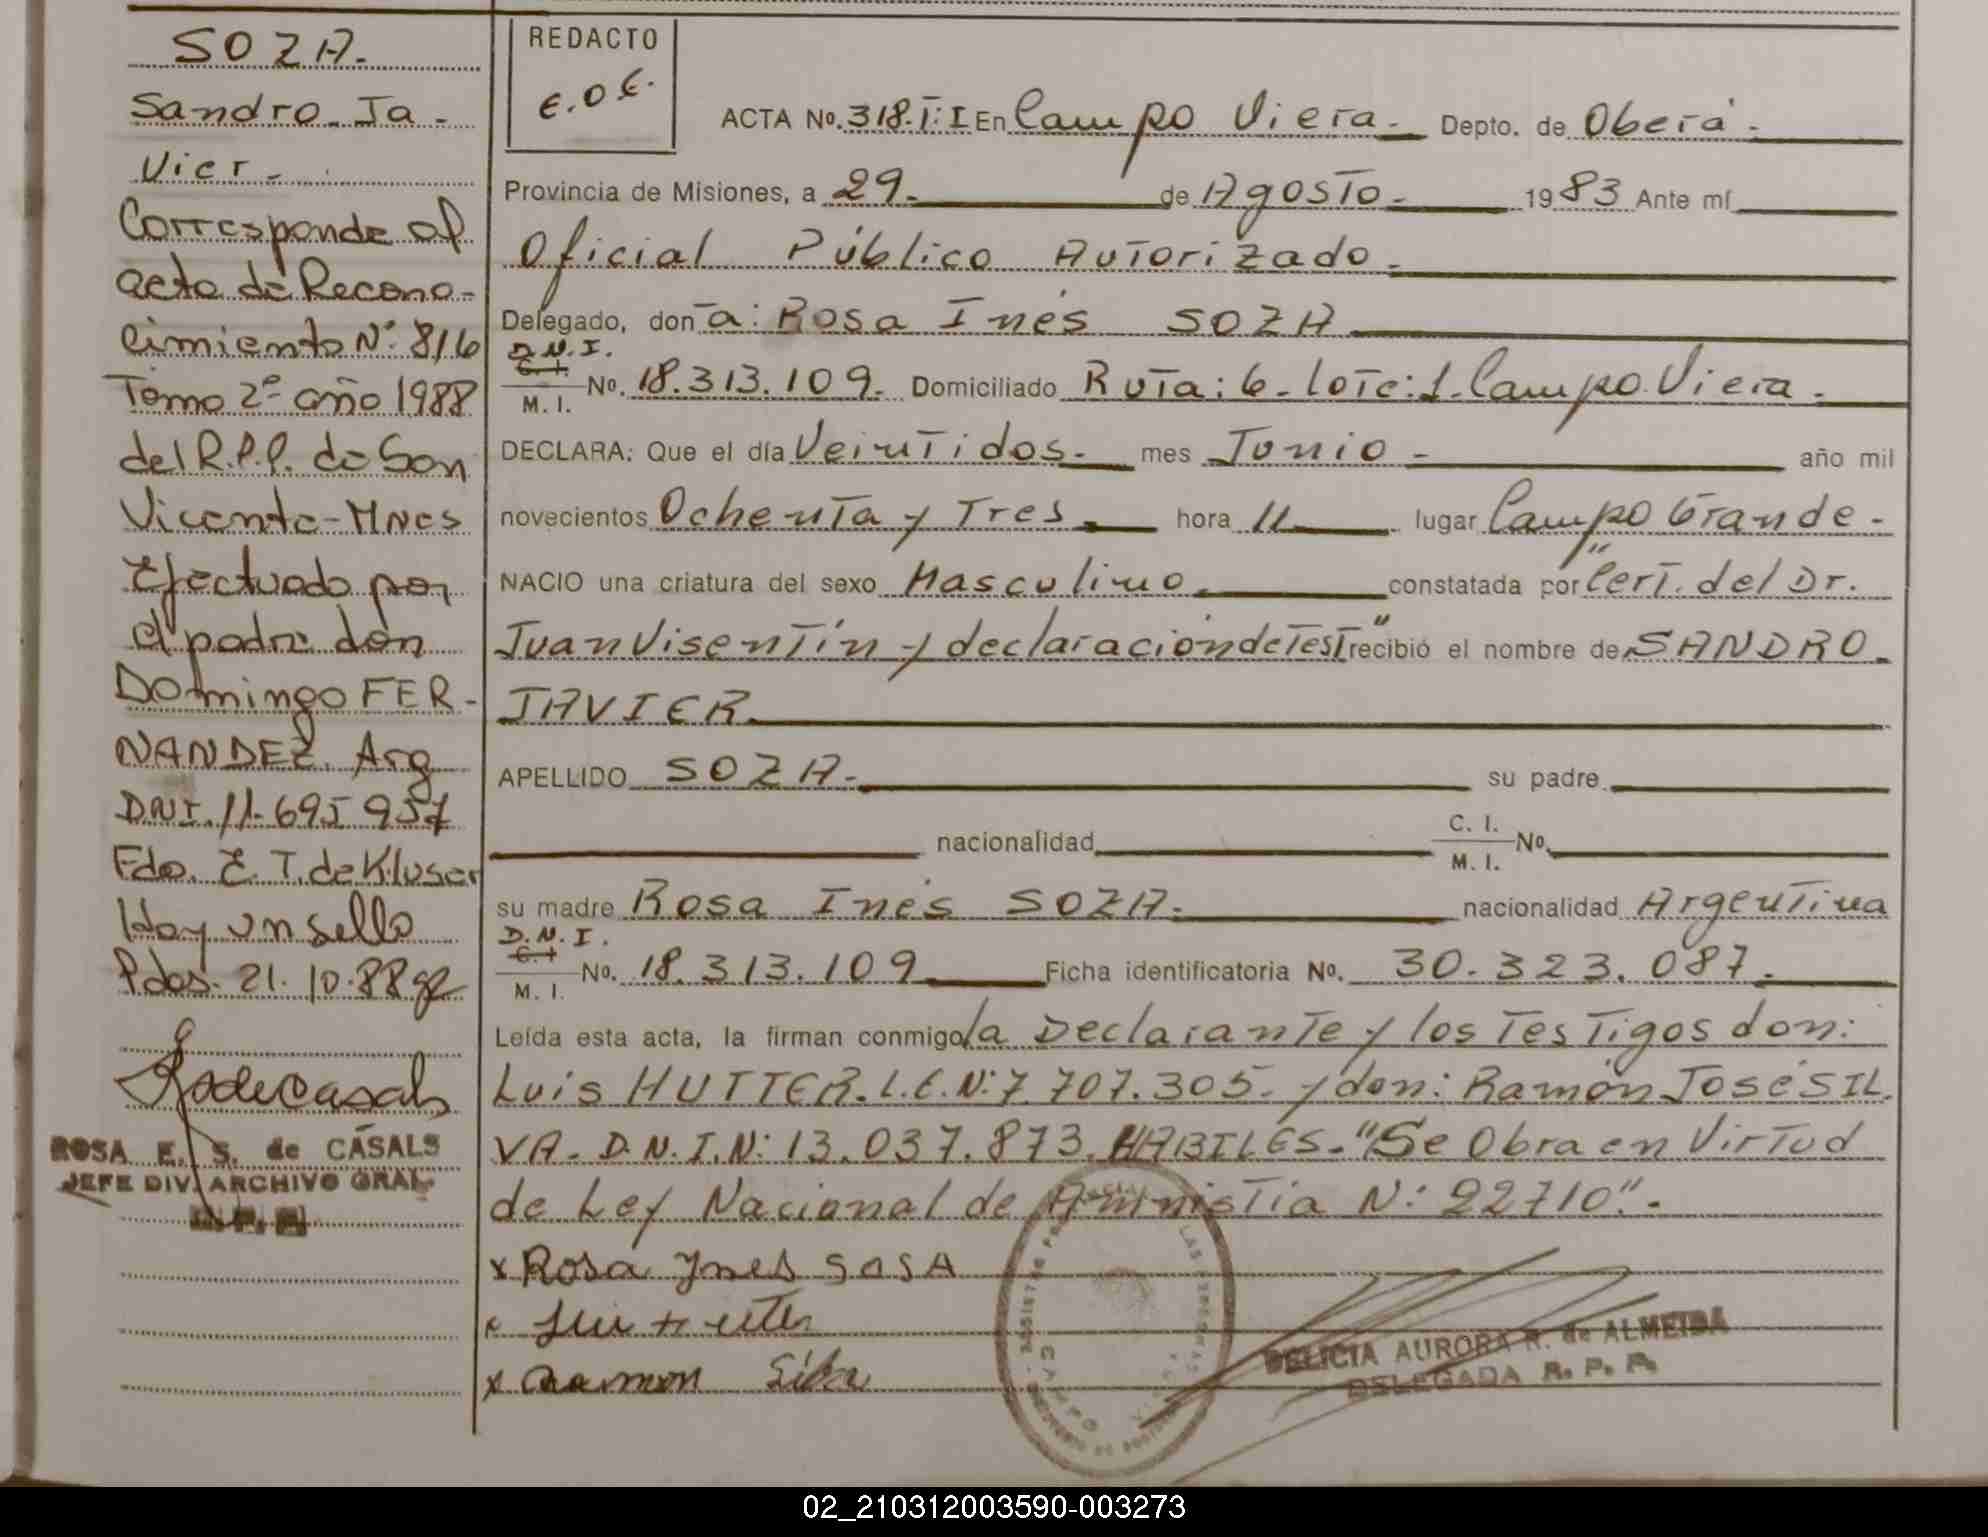 SOZA.
Sandro Ja-
vier.
Corresponde al
acta de Recono-
cimiento Nº: 816
Tomo 2º año 1988
del R.P.P. de San
Vicente-Mnes
Efectuado por
el padre don
Domingo FER-
NANDEZ. Arg
DNI. 11.695.957
Fdo. E. T. de Kluser
Hay un sello
Pdas. 21.10.88
ROSA E. S. de CASALS
JEFE DIV. ARCHIVO GRAL.
R. P. P.
REDACTO
E.O.E.
ACTA No. 318.T:I En Campo Viera. Depto. de Oberá.
Provincia de Misiones, a 29. de Agosto. 1983 Ante mí
Oficial Público Autorizado.
Delegado, don a: Rosa Inés SOZA
D.N.I.
C. I.
M. I. No. 18.313.109. Domiciliado Ruta: 6. Lote: 1. Campo Viera.
DECLARA: Que el día Veintidos. mes Junio. año mil
novecientos Ochenta y Tres hora 11 lugar Campo Grande.
NACIO una criatura del sexo Masculino. constatada por "Cert. del Dr.
Juan Visentín y declaración de Test" recibió el nombre de SANDRO
JAVIER
APELLIDO SOZA. su padre
nacionalidad C. I. M. I. No.
su madre Rosa Inés SOZA. nacionalidad Argentina
D.N.I.
C. I.
M. I. No. 18.313.109 Ficha identificatoria No. 30.323.087.
Leída esta acta, la firman conmigo la Declarante y los Testigos don:
Luis HUTTER. L.E. N: 7.707.305. y don: Ramón José SIL
VA. D.N.I. N: 13.037.873. HABILES. "Se Obra en Virtud
de Ley Nacional de Amnistia N: 22710".
x Rosa Ynes SOSA
x Ramon Silva
CAMPO VIERA
DELICIA AURORA R. de ALMEIDA
DELEGADA R. P. P.
02_210312003590-003273